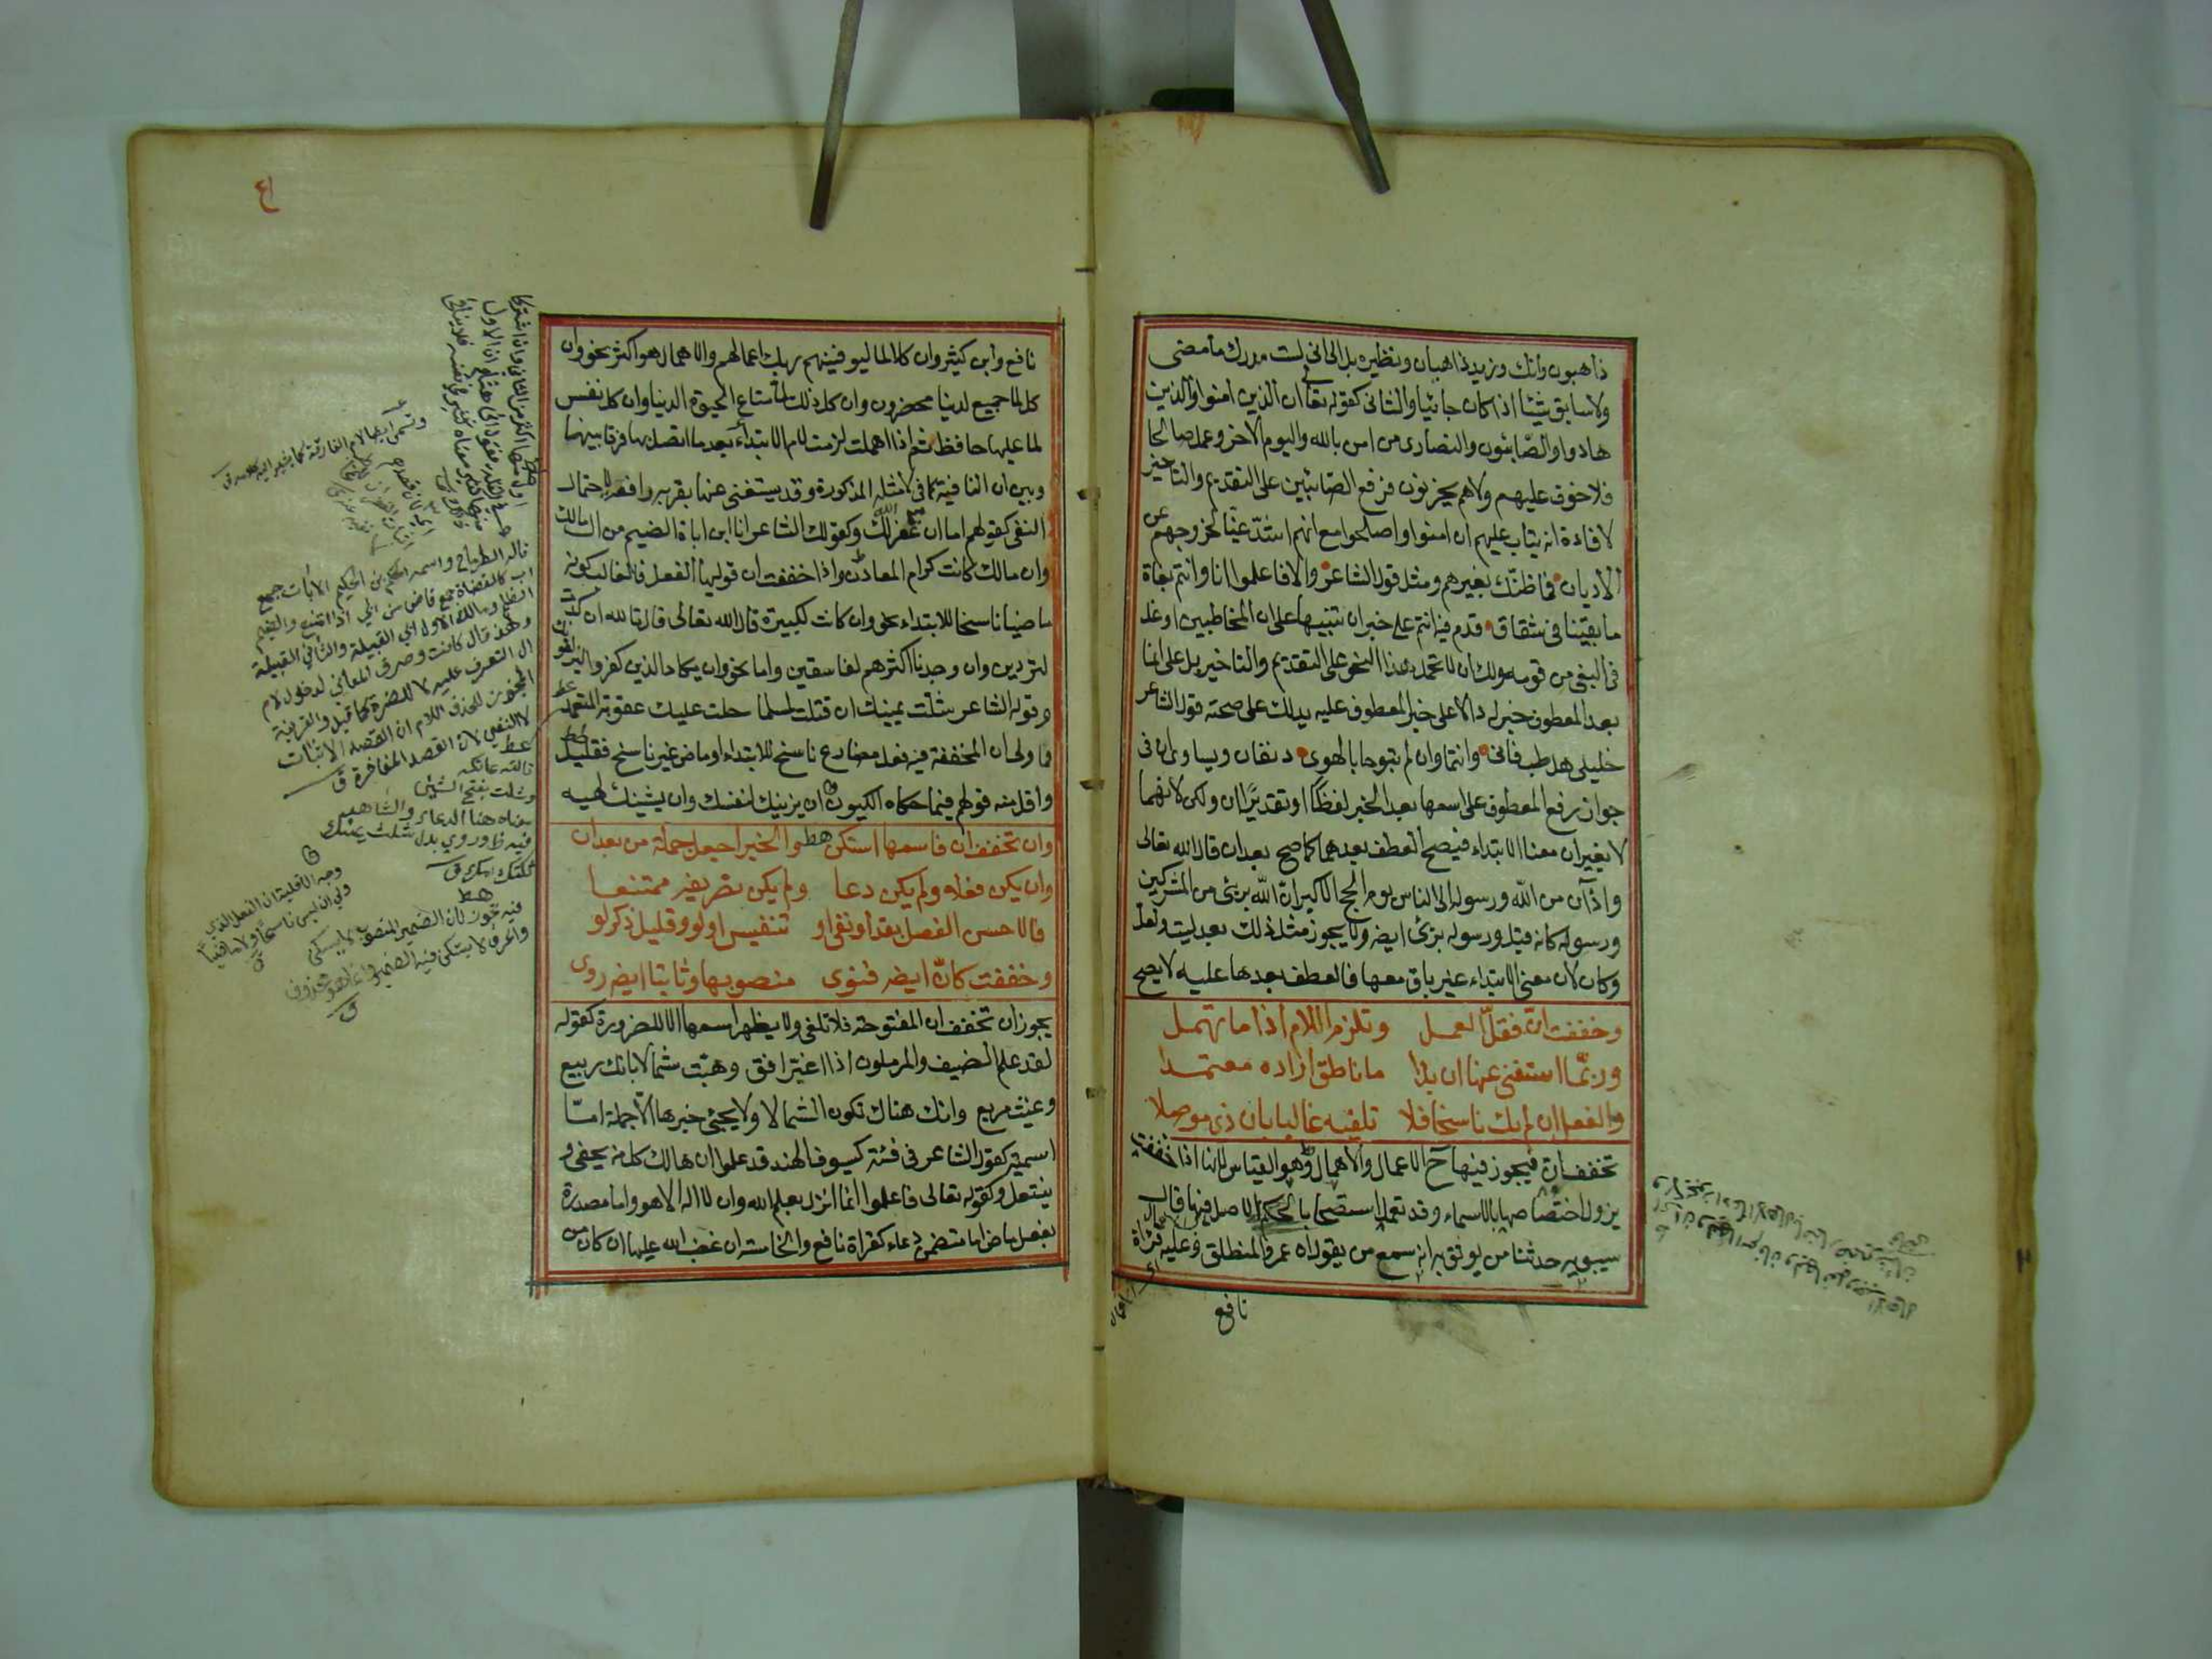 ذاهبون وانك وزيد ذاهبان ونظيره بدا لي اني لست مدرك ما مضى
ولا سابق شيئا اذا كان جائيا والثاني كقوله تعا ان الذين امنوا والذين
هادوا والصّابئون والنصارى من امن بالله واليوم الاخر وعمل صالحا
فلا خوف عليهم ولا هم يحزنون فرفع الصّابئين على التقديم والتاخير
لافادة انه يتاب عليهم ان امنوا واصلحوا مع انهم اشدّ غيّا لخروجهم عن
الاديان فما ظنّك بغيرهم ومثل قول الشاعر والا فاعلموا انا وانتم بغاة
ما بقينا في شقاق قدم فيه انتم على خبر ان تنبيها على ان المخاطبين اوغل
في البغي من قومه ولك ان لا تحمل هذا النحو على التقديم والتاخير بل على ان ما
بعد المعطوف خبر له دالا على خبر المعطوف عليه يدلك على صحته قول الشاعر
خليلي هل طب فاني وانتما وان لم تبوحا بالهوى دنفان ويساوي ان في
جواز رفع المعطوف على اسمها بعد الخبر لفظا او تقديرًا ان ولكن لانهما
لا يغيران معنا الابتداء فيصح العطف بعدهما كما صح بعد ان قال الله تعالى
واذان من الله ورسوله الى الناس يوم الحج الاكبر ان الله برئ من المشركين
ورسوله كانه قيل ورسوله برئ ايضه ولا يجوز مثل ذلك بعد ليت ولعل
وكان لان معنى الابتداء غير باق معها فالعطف بعدها عليه لا يصح
وخففت انّ فقلّ العمل وتلزم اللام اذا ما تهمل
وربّما استغني عنها ان بدا ما ناطق اراده معتمدا
والفعل ان لم يك ناسخا فلا تلفيه غالبا بان ذي موصلا
تخفف ان فيجوز فيها ح الاعمال والاهمال وهو القياس لانها اذا خففت
يزول اختصاصها بالاسماء وقد تعمل استصحابا لحكم الاصل فيها قال
سيبويه حدثنا من يوثق به انه سمع من يقول ان عمرو المنطلق وعليه قراة
نافع
نافع وابن كثير وان كلا لما ليوفينهم ربك اعمالهم والاهمال هو اكثر نحو وان
كل لما جميع لدينا محضرون وان كل ذلك لما متاع الحيوة الدنيا وان كل نفس
لما عليها حافظ ثم اذا اهملت لزمت لام الابتداء بعد ما اتصل بها فرقا بينها
وبين ان النافية كما في الامثله المذكورة وقد يستغنى عنها بقرينه رافعه لاحتمال
النفي كقولهم اما ان غفر الله لك وكقول الشاعر انا ابن اباة الضيم من ال مالك
وان مالك كانت كرام المعادن واذا خففت ان فوليها الفعل فالغالب كونه
ماضيا ناسخا للابتداء نحو وان كانت لكبيرة قال الله تعالى قال تا لله ان كدت
لتردين وان وجدنا اكثرهم لفاسقين واما نحو وان يكاد الذين كفروا ليزلقونك
وقوله الشاعر شلت يمينك ان قتلت لمسلما حلت عليك عقوبة المتعمد
فما ولي ان المخففة فيه فعل مضارع ناسخ للابتداء او ماض غير ناسخ فقليل
واقل منه قولهم فيما حكاه الكيون ان يزينك لنفسك وان يشينك لهيه
وان تخفف ان فاسمها استكن والخبر اجعل جملة من بعد ان
وان يكن فعلا ولم يكن دعا ولم يكن تصريفه ممتنعا
فالاحسن الفصل بقد او نفي او تنفيس او لو وقليل ذكر لو
وخففت كانّ ايضه فنوى منصوبها وثابتا ايضه روى
يجوز ان تخفف ان المفتوحة فلا تلغى ولا يظهر اسمها الا للضرورة كقوله
لقد علم الضيف والمرملون اذا اغبر افق وهبّت شمالا بانك ربيع
وغيث مريع وانك هناك تكون الشمالا ولا يجئ خبرها الّا جملة امّا
اسمية كقول الشاعر في فتية كسيوف الهند قد علموا ان هالك كل من يحفى و
ينتعل وكقوله تعالى فاعلموا انما انزل بعلم الله وان لا اله الا هو واما مصدرة
بفعل ماض اما متضمن دعاء كقراة نافع والخامسة ان غضب الله عليها ان كان من
وتسمى ايضا لام الفارقة كما يشير اليه كلامه ق
قاله الطرماح واسمه الحكم بن الحكيم الابات جمع
اب كالقضاة جمع قاض من ابى اذا امتنع والضيم
الظلم ومالك الاول ابي القبيلة والثاني القبيلة
ولهذا قال كانت وصرف المعاني لدخول لام
المجوز لحذف اللام ان القصد الاثبات
لا النفي لان القصد المفاخرة ق
قالته عاتكه
وشلت بفتح الشين
معناه هنا الدعاء والشاهد
فيه ظ وروي بدل شلت يمينك
ثكلتك امك ق
وجه الاقلية ان الفعل الذي
ولي ان ليس ناسخا ولا ماضيا
فيه تجوز لان الضمير المنصوب لا يستكن